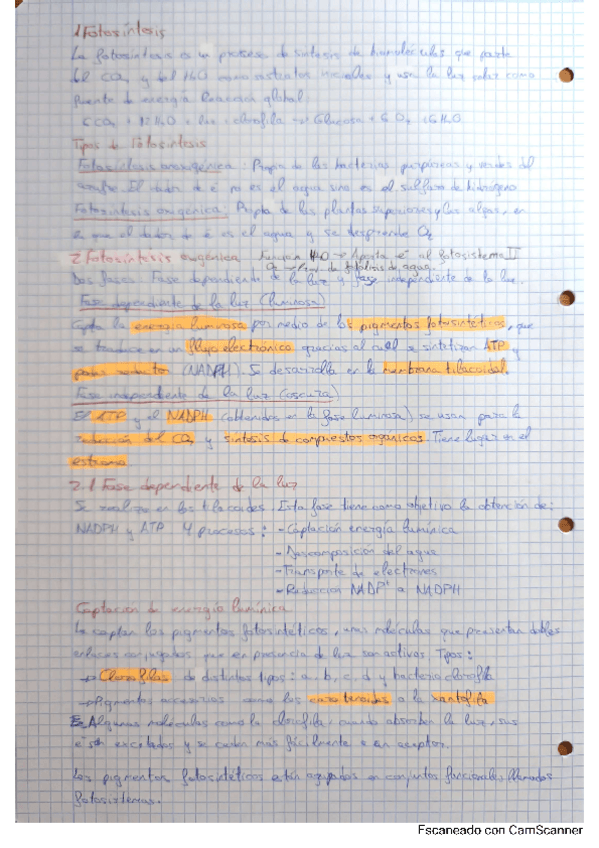 1 Fotosíntesis
La fotosíntesis es un proceso de síntesis de biomoléculas que parte
del CO2 y del H2O como sustratos iniciales y usa la luz solar como
fuente de energía. Reacción global:
6CO2 + 12H2O + luz + clorofila → Glucosa + 6O2 + 6H2O
Tipos de Fotosíntesis
Fotosíntesis anoxigénica: Propia de las bacterias purpúreas y verdes del
azufre. El dador de é no es el agua sino es el sulfuro de hidrógeno
Fotosíntesis oxigénica: Propia de las plantas superiores y las algas, en
la que el dador de é es el agua y se desprende O2
2 Fotosíntesis oxigénica Función H2O → Aporta é al fotosistema II
O2 → de fotólisis de agua.
Dos fases: Fase dependiente de la luz y fase independiente de la luz.
Fase dependiente de la luz (luminosa)
Capta la energía luminosa por medio de los pigmentos fotosintéticos, que
se traduce en un flujo electrónico gracias al cual se sintetizan ATP y
poder reductor (NADPH). Se desarrolla en la membrana tilacoidal.
Fase independiente de la luz (oscura)
El ATP y el NADPH (obtenidos en la fase luminosa) se usan para la
reducción del CO2 y síntesis de compuestos orgánicos. Tiene lugar en el
estroma
2.1 Fase dependiente de la luz
Se realiza en los tilacoides. Esta fase tiene como objetivo la obtención de:
NADPH y ATP 4 procesos: - Captación energía lumínica
- Descomposición del agua
- Transporte de electrones
- Reducción NADP+ a NADPH
Captación de energía lumínica
La captan los pigmentos fotosintéticos, unas moléculas que presentan dobles
enlaces conjugados que en presencia de luz son activos. Tipos:
→ Clorofilas de distintos tipos: a, b, c, d y bacterio clorofila
→ Pigmentos accesorios como los carotenoides o la xantofila
Algunas moléculas como la clorofila, cuando absorben la luz, sus
é son excitados y se ceden más fácilmente a un aceptor.
Los pigmentos fotosintéticos están agrupados en conjuntos funcionales llamados
fotosistemas.
Escaneado con CamScanner